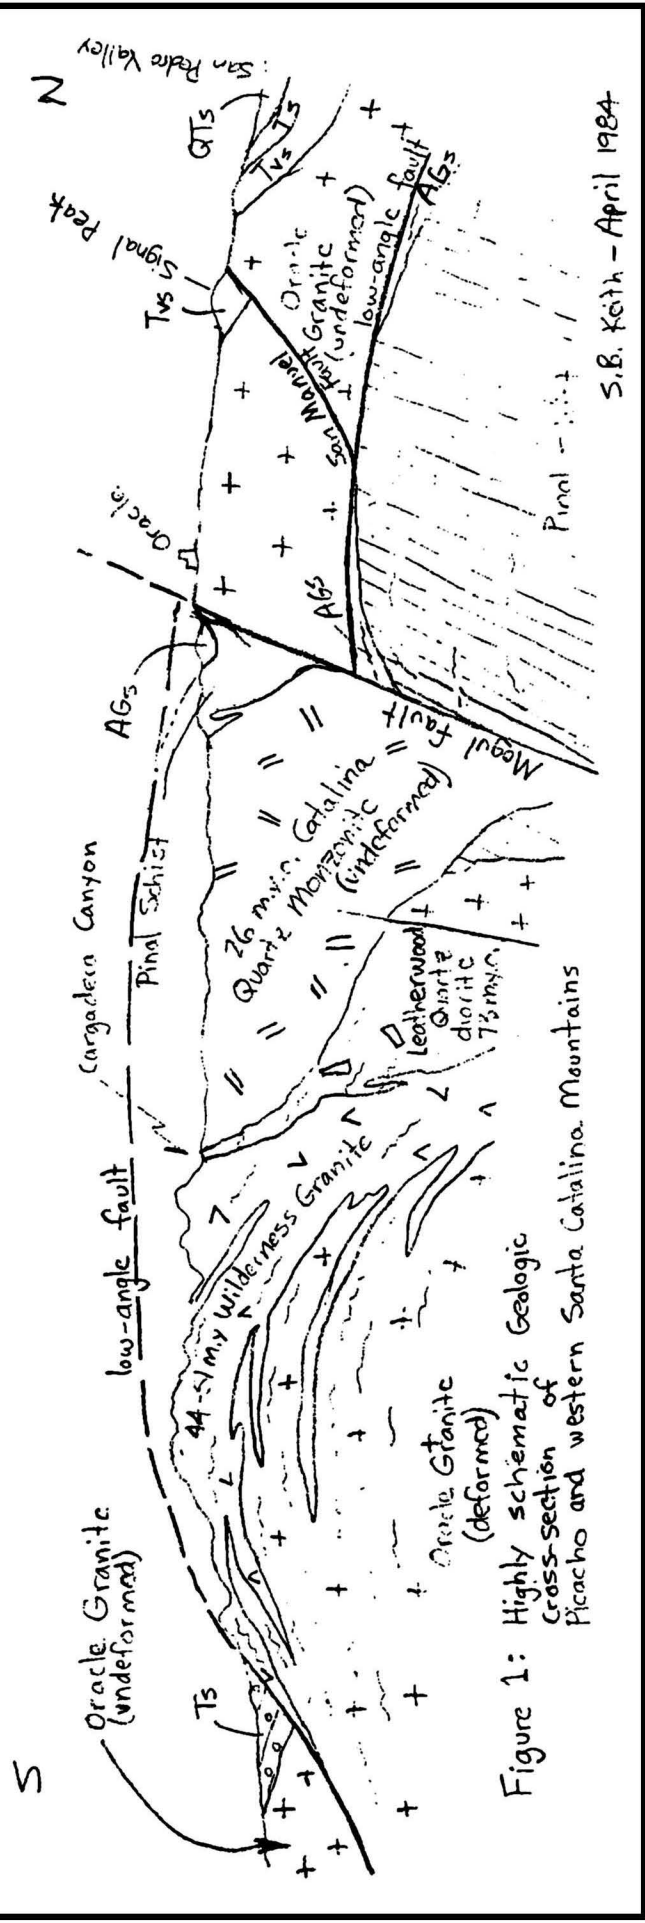 S
N
Oracle Granite
(undeformed)
Ts
low-angle fault
Cargadera Canyon
Pinal Schist
AGs
Oracle
Tvs
Signal Peak
QTs
: San Pedro Valley
Ts
Tvs
44-51 m.y Wilderness Granite
26 m.y.o. Catalina
Quartz Monzonite
(undeformed)
Leatherwood
Quartz
diorite
73 m.y.o.
Mogul fault
AGs
San Manuel fault
Oracle
Granite
(undeformed)
low-angle fault
AGs
Pinal
Oracle Granite
(deformed)
Figure 1: Highly schematic Geologic
Cross-section of
Picacho and western Santa Catalina Mountains
S.B. Keith - April 1984